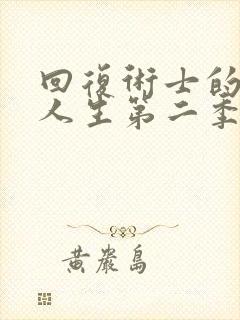 回復術士的
人生第二季
黃巖島